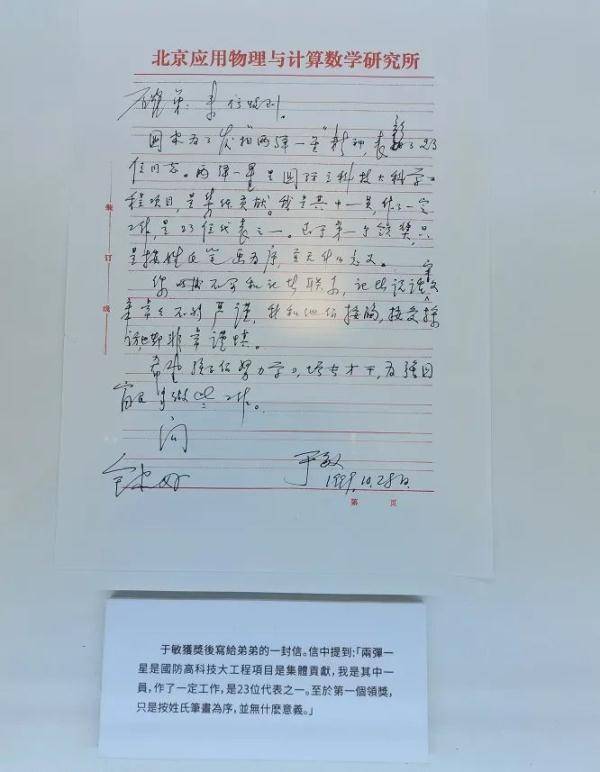 北京应用物理与计算数学研究所
弟：来信收到。
国家为了发"两弹一星"表彰了23
位同志。两弹一星是国防高科技大科学工
程项目，是集体贡献。我是其中一员，作了一定
工作，是23位代表之一。至于第一个领奖，只
是按姓氏笔画为序，并无什么意义。
不要和记者联系，记者
不够严谨，我和他们接触，接受采
访非常谨慎。
希望孩子们努力学习，增长才干，为强国
富民多做些工作。
问
全家好
于敏
1999.10.28日
装
订
线
第 页
于敏獲獎後寫給弟弟的一封信。信中提到：「兩彈一
星是國防高科技大工程項目是集體貢獻，我是其中一
員，作了一定工作，是23位代表之一。至於第一個領獎，
只是按姓氏筆畫為序，並無什麽意義。」